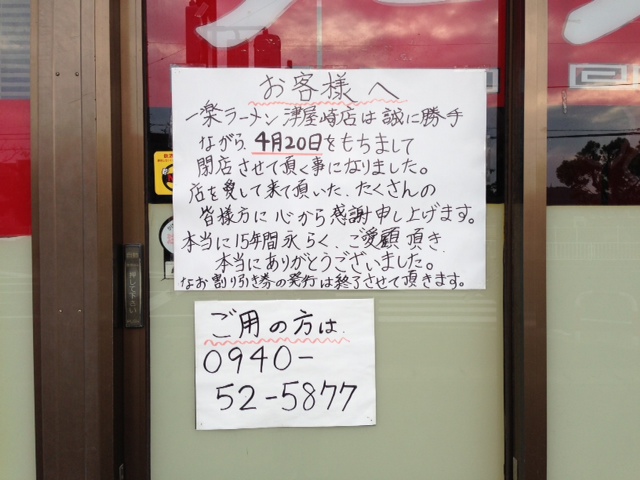 お客様へ
一楽ラーメン津屋崎店は誠に勝手
ながら、4月20日をもちまして
閉店させて頂く事になりました。
店を愛して来て頂いた、たくさんの
皆様方に心から感謝申し上げます。
本当に15年間永らく、ご愛顧頂き
本当にありがとうございました。
なお割り引き券の発行は終了させて頂きます。
ご用の方は、
0940-
52-5877
押して下さい